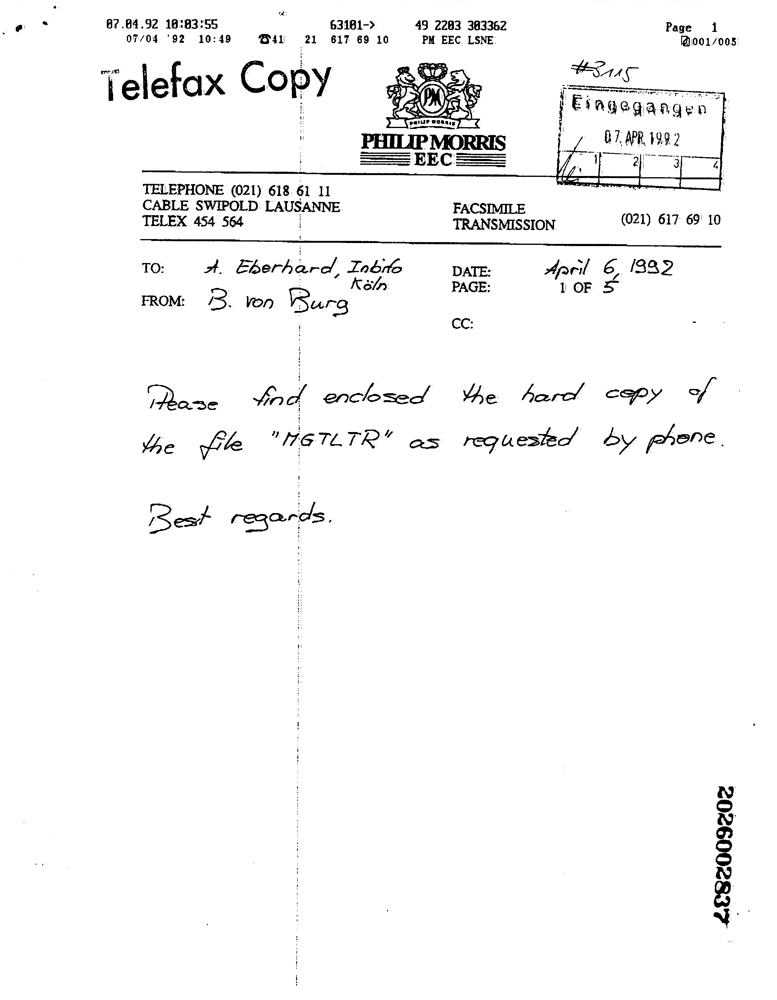 07.04.92 10:03:55 63101-> 49 2203 303362 Page 1
07/04 '92 10:49 ☎41 21 617 69 10 PM EEC LSNE 001/005
Telefax Copy
#3115
PM
PHILIP MORRIS
PHILIP MORRIS
EEC
Eingegangen
07. APR. 1992
1 2 3 4
TELEPHONE (021) 618 61 11
CABLE SWIPOLD LAUSANNE
TELEX 454 564
FACSIMILE
TRANSMISSION (021) 617 69 10
TO: A. Eberhard, Inbifo
Köln
DATE: April 6, 1992
FROM: B. von Burg
PAGE: 1 OF 5
CC:
Please find enclosed the hard copy of
the file "MGTLTR" as requested by phone.
Best regards.
2026002837